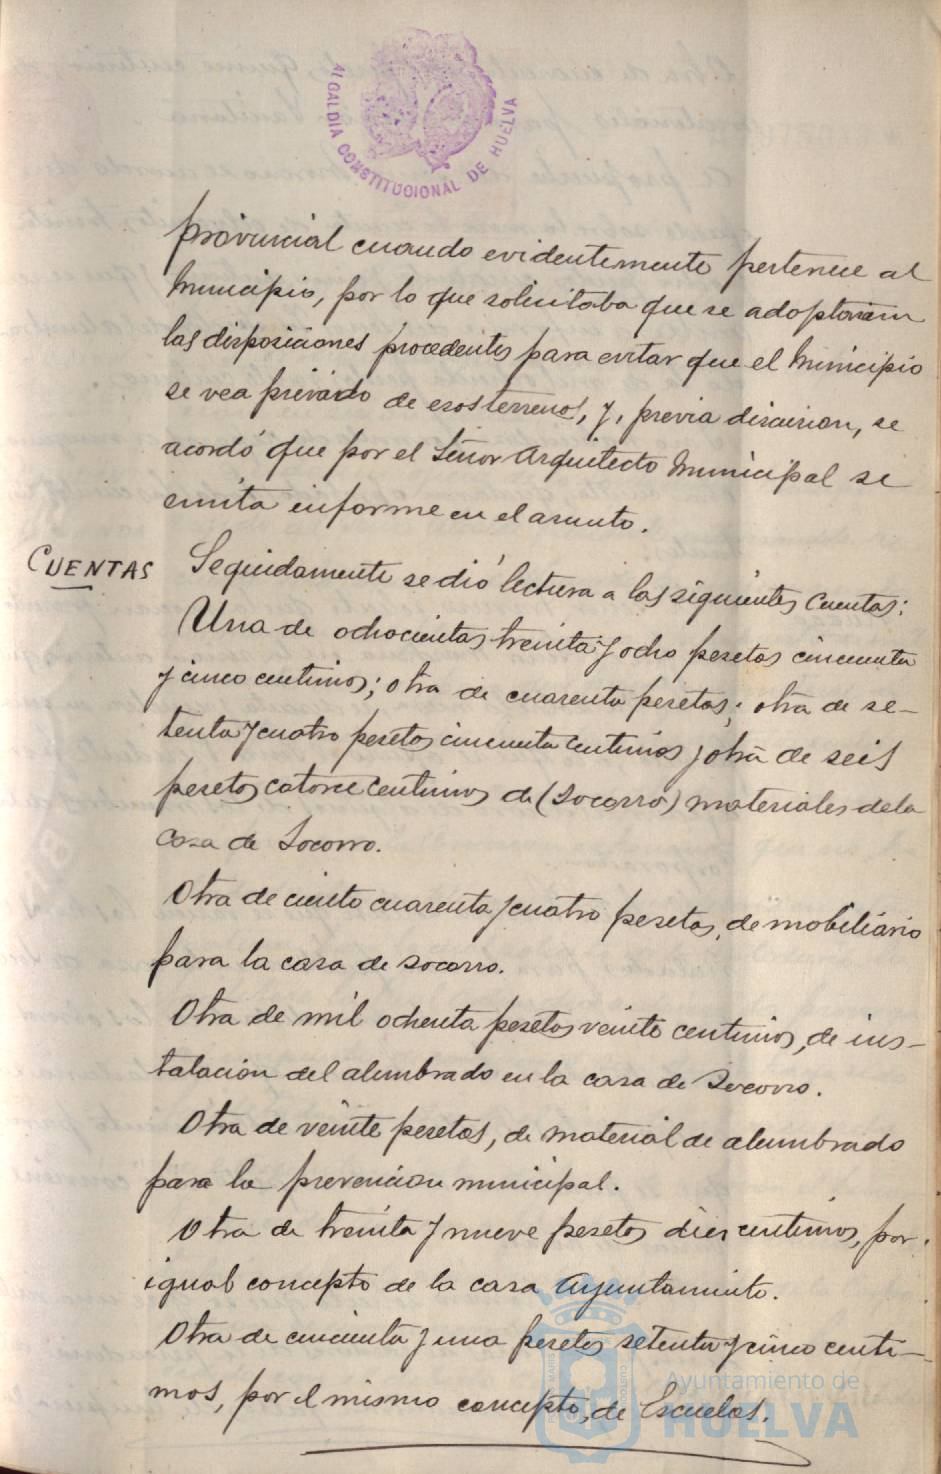 ALCALDÍA CONSTITUCIONAL DE HUELVA
provincial cuando evidentemente pertenece al
Municipio, por lo que solicitaba que se adoptaran
las disposiciones procedentes para evitar que el Municipio
se vea privado de esos terrenos, y, previa discusion, se
acordó que por el Señor Arquitecto Municipal se
emita informe en el asunto.
CUENTAS
Seguidamente se dió lectura a las siguientes Cuentas:
Una de ochocientas treinta y ocho pesetas cincuenta
y cinco centimos; otra de cuarenta pesetas; otra de se-
tenta y cuatro pesetas cincuenta centimos y otra de seis
pesetas catorce centimos de (Socorro) materiales de la
Casa de Socorro.
Otra de ciento cuarenta y cuatro pesetas, de mobiliario
para la casa de socorro.
Otra de mil ochenta pesetas veinte centimos, de ins-
talacion del alumbrado en la casa de Socorro.
Otra de veinte pesetas, de material de alumbrado
para la prevencion municipal.
Otra de treinta y nueve pesetas diez centimos, por
igual concepto de la casa Ayuntamiento.
Otra de cincuenta y una pesetas setenta y cinco centi-
mos, por el mismo concepto, de Escuelas.
Ayuntamiento de
HUELVA